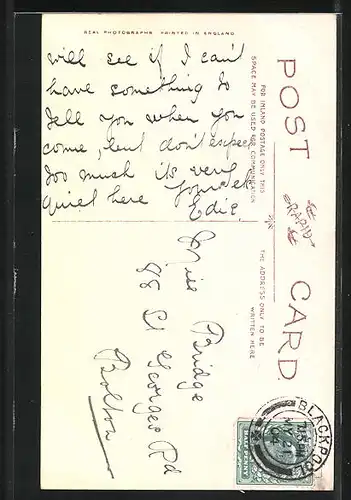 REAL PHOTOGRAPHS PRINTED IN ENGLAND
will see if I can't
have something to
tell you when you
come, but don't expect
too much its very
quiet here Yours etc
Edie
FOR INLAND POSTAGE ONLY THIS
SPACE MAY BE USED FOR COMMUNICATION
POST CARD.
RAPID
THE ADDRESS ONLY TO BE
WRITTEN HERE
Miss Bridge
88 St Georges Rd
Bolton
HALF PENNY
BLACKPOOL
MY 21
04